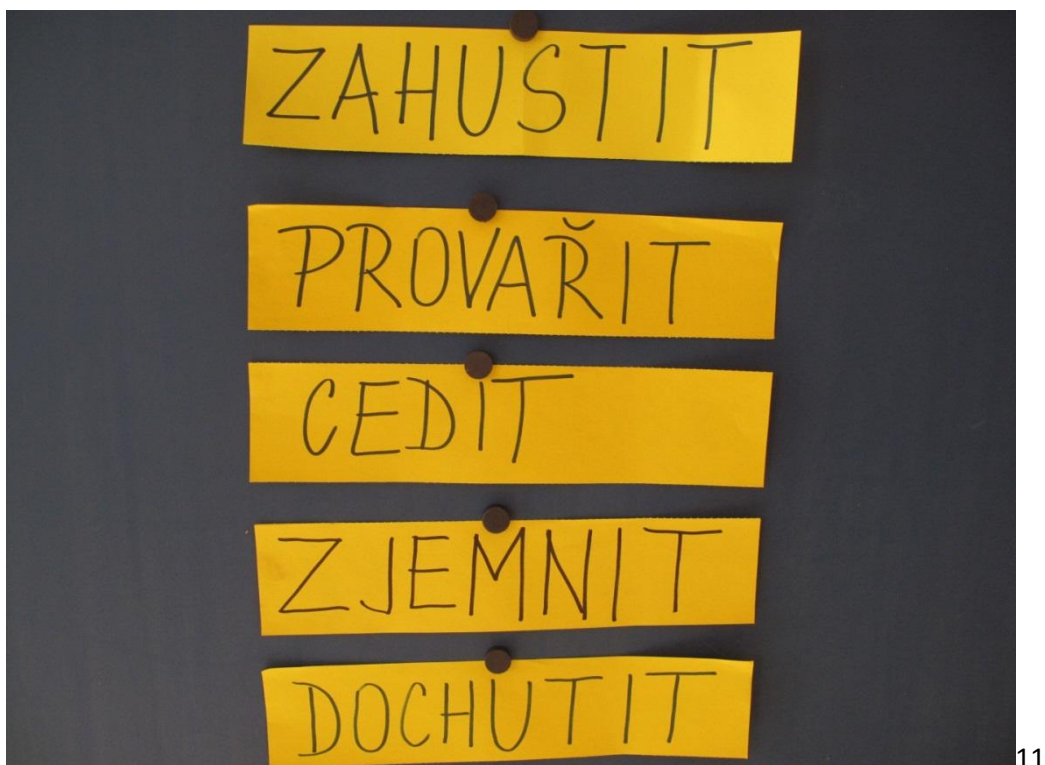 ZAHUSTIT
PROVAŘIT
CEDIT
ZJEMNIT
DOCHUTIT
11